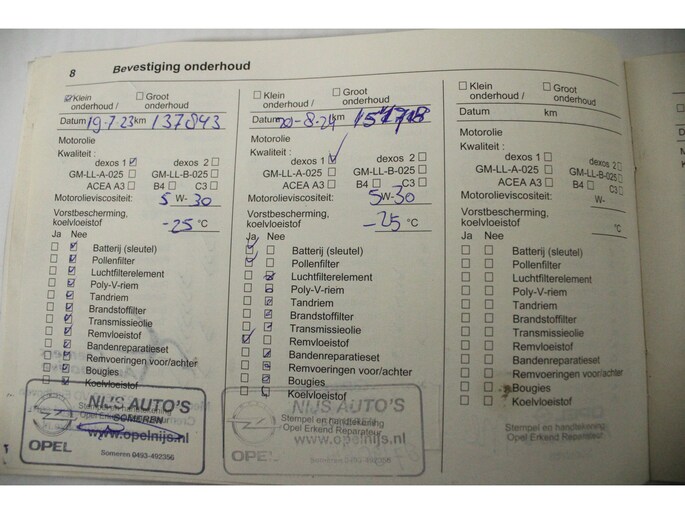 8 Bevestiging onderhoud
☑ Klein onderhoud / ☐ Groot onderhoud
Datum 19-7-23 km 137843
Motorolie
Kwaliteit :
dexos 1 ☑ dexos 2 ☐
GM-LL-A-025 ☐ GM-LL-B-025 ☐
ACEA A3 ☐ B4 ☐ C3 ☐
Motorolieviscositeit: 5 W- 30
Vorstbescherming,
koelvloeistof -25 °C
Ja Nee
Batterij (sleutel)
Pollenfilter
Luchtfilterelement
Poly-V-riem
Tandriem
Brandstoffilter
Transmissieolie
Remvloeistof
Bandenreparatieset
Remvoeringen voor/achter
Bougies
Koelvloeistof
NIJS AUTO'S
Stempel en handtekening
SOMEREN
Opel Erkend Reparateur
www.opelnijs.nl
OPEL
Someren 0493-492356
☐ Klein onderhoud / ☐ Groot onderhoud
Datum 20-8-24 km
Motorolie
Kwaliteit :
dexos 1 ☑ dexos 2 ☐
GM-LL-A-025 ☐ GM-LL-B-025 ☐
ACEA A3 ☐ B4 ☐ C3 ☐
Motorolieviscositeit: 5 W- 30
Vorstbescherming,
koelvloeistof -25 °C
Ja Nee
Batterij (sleutel)
Pollenfilter
Luchtfilterelement
Poly-V-riem
Tandriem
Brandstoffilter
Transmissieolie
Remvloeistof
Bandenreparatieset
Remvoeringen voor/achter
Bougies
Koelvloeistof
NIJS AUTO'S
Stempel en handtekening
www.opelnijs.nl
Opel Erkend Reparateur
OPEL
☐ Klein onderhoud / ☐ Groot onderhoud
Datum km
Motorolie
Kwaliteit :
dexos 1 ☐ dexos 2 ☐
GM-LL-A-025 ☐ GM-LL-B-025 ☐
ACEA A3 ☐ B4 ☐ C3 ☐
Motorolieviscositeit: W-
Vorstbescherming,
koelvloeistof °C
Ja Nee
Batterij (sleutel)
Pollenfilter
Luchtfilterelement
Poly-V-riem
Tandriem
Brandstoffilter
Transmissieolie
Remvloeistof
Bandenreparatieset
Remvoeringen voor/achter
Bougies
Koelvloeistof
Stempel en handtekening
Opel Erkend Reparateur